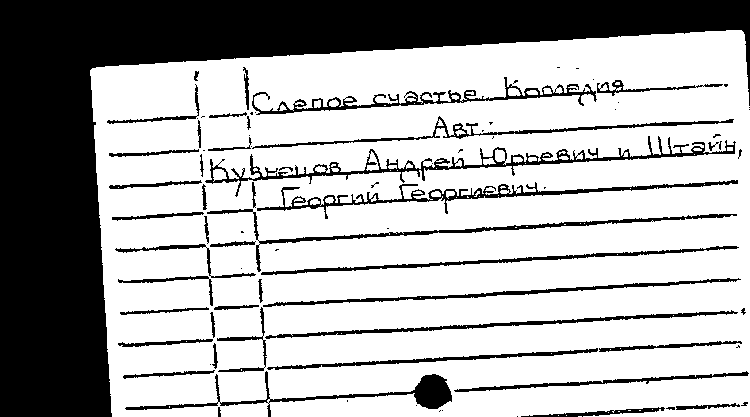 Слепое счастье. Комедия
Авт.:
Кузнецов, Андрей Юрьевич и Штайн,
Георгий Георгиевич.